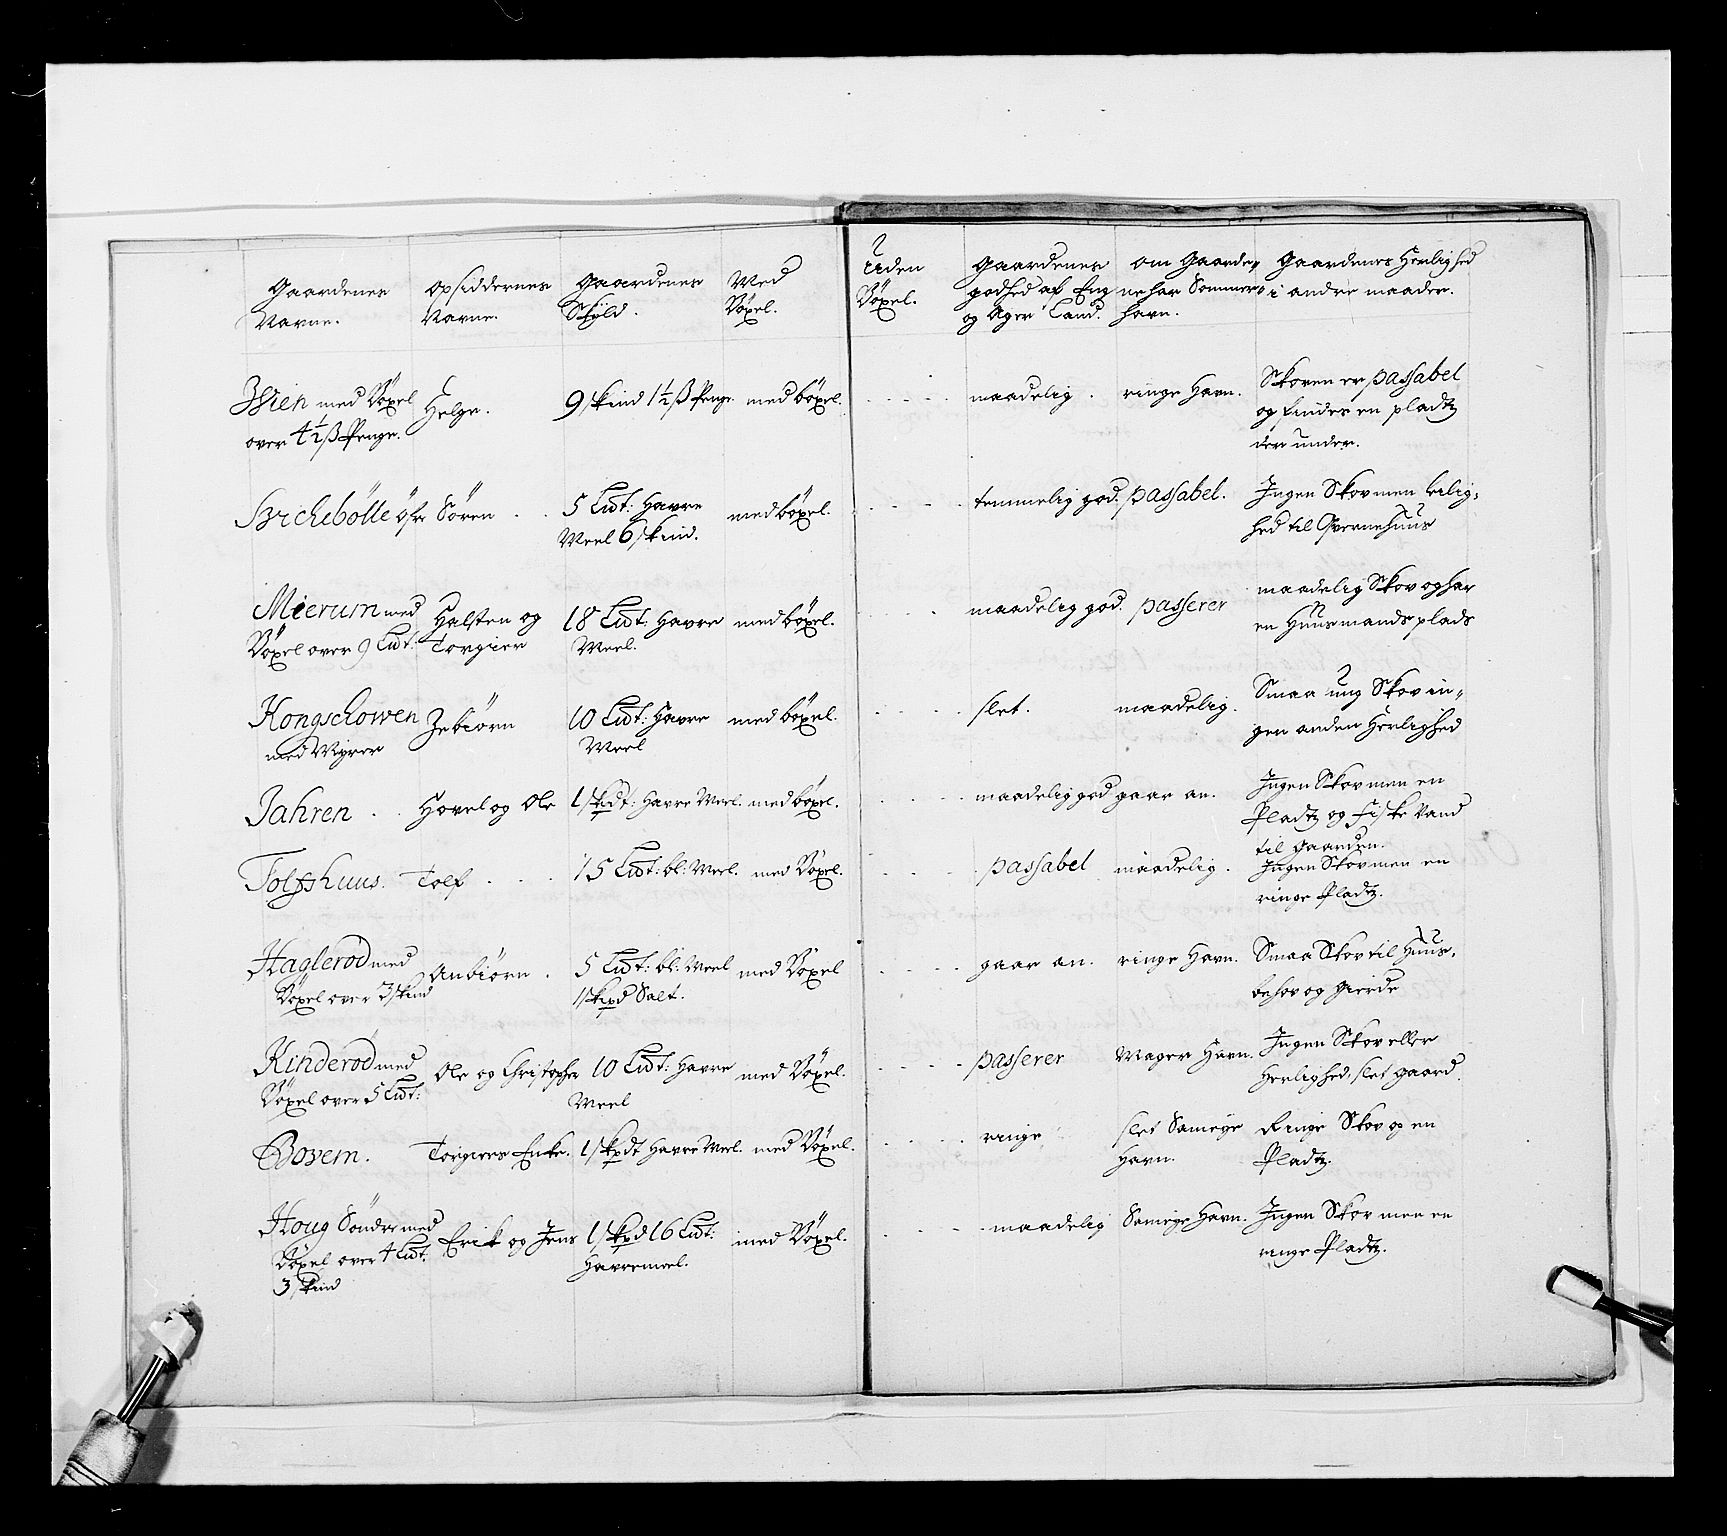 Gaardenes Navne.
Opsiddernes Navne.
Gaardenes Skyld.
Med Böxel.
Uden Böxel.
Gaardenes godhed af Eng og Ager Land.
om Gaarde, ne har Sommer, havn.
Gaardenes Herlighed i andre maader.
med Böxel over 4½ ß Penge.
Helge.
9 skind 1½ ß Penge
med böxel.
maadelig.
ringe Havn.
Skoven er passabel og findes en pladtz der under.
öfre
Sören
5 Lidt: Havre Meel 6 skind.
med böxel.
temmelig god.
passabel.
Ingen Skov men leilig, hed til Qvernehuus
Mierum med Böxel over 9 Lidt:
Halsten og Torgier
18 Lidt: Havre Meel.
med böxel.
maadelig god.
passerer
maadelig Skov og har en Huusmands plads
Kongschowen med Myrer
Zebiörn
10 Lidt: Havre Meel
med böxel.
slet.
maadelig.
Smaa ung Skov in, gen anden Herlighed
Jahren
Hovel og Ole
1 skpdt: Havre Meel.
med böxel.
maadelig god
gaar an.
Ingen Skov men en Pladtz og Fiske Vand til Gaarden.
Tolfshuus.
Tolf
15 Lidt: bl: Meel.
med Böxel.
passabel
maadelig.
Ingen Skov men en ringe Pladtz.
Haglerød med Böxel over 3 skind
Anbiörn.
5 Lidt: bl: Meel 1 skpd Salt.
med Böxel
gaar an.
ringe Havn.
Smaa Skov til Huus, behov og Gierde
Kinderød med Böxel over 5 Lidt:
Ole og Christopher
10 Lidt: Havre Meel
med Böxel.
passerer
Mager Havn.
Ingen Skov eller Herlighed, slet gaard.
Bovem.
Torgiers Enke.
1 skpdt Havre Meel.
med Böxel.
ringe
slet Sameye Havn.
Ringe Skov og en Pladtz.
Houg Söndre med Böxel over 4 Lidt. 3 skind
Erik og Jens
1 skpd 16 Lidt: Havremeel.
med Böxel.
maadelig
Sameye Havn.
Ingen Skov men en ringe Pladtz.